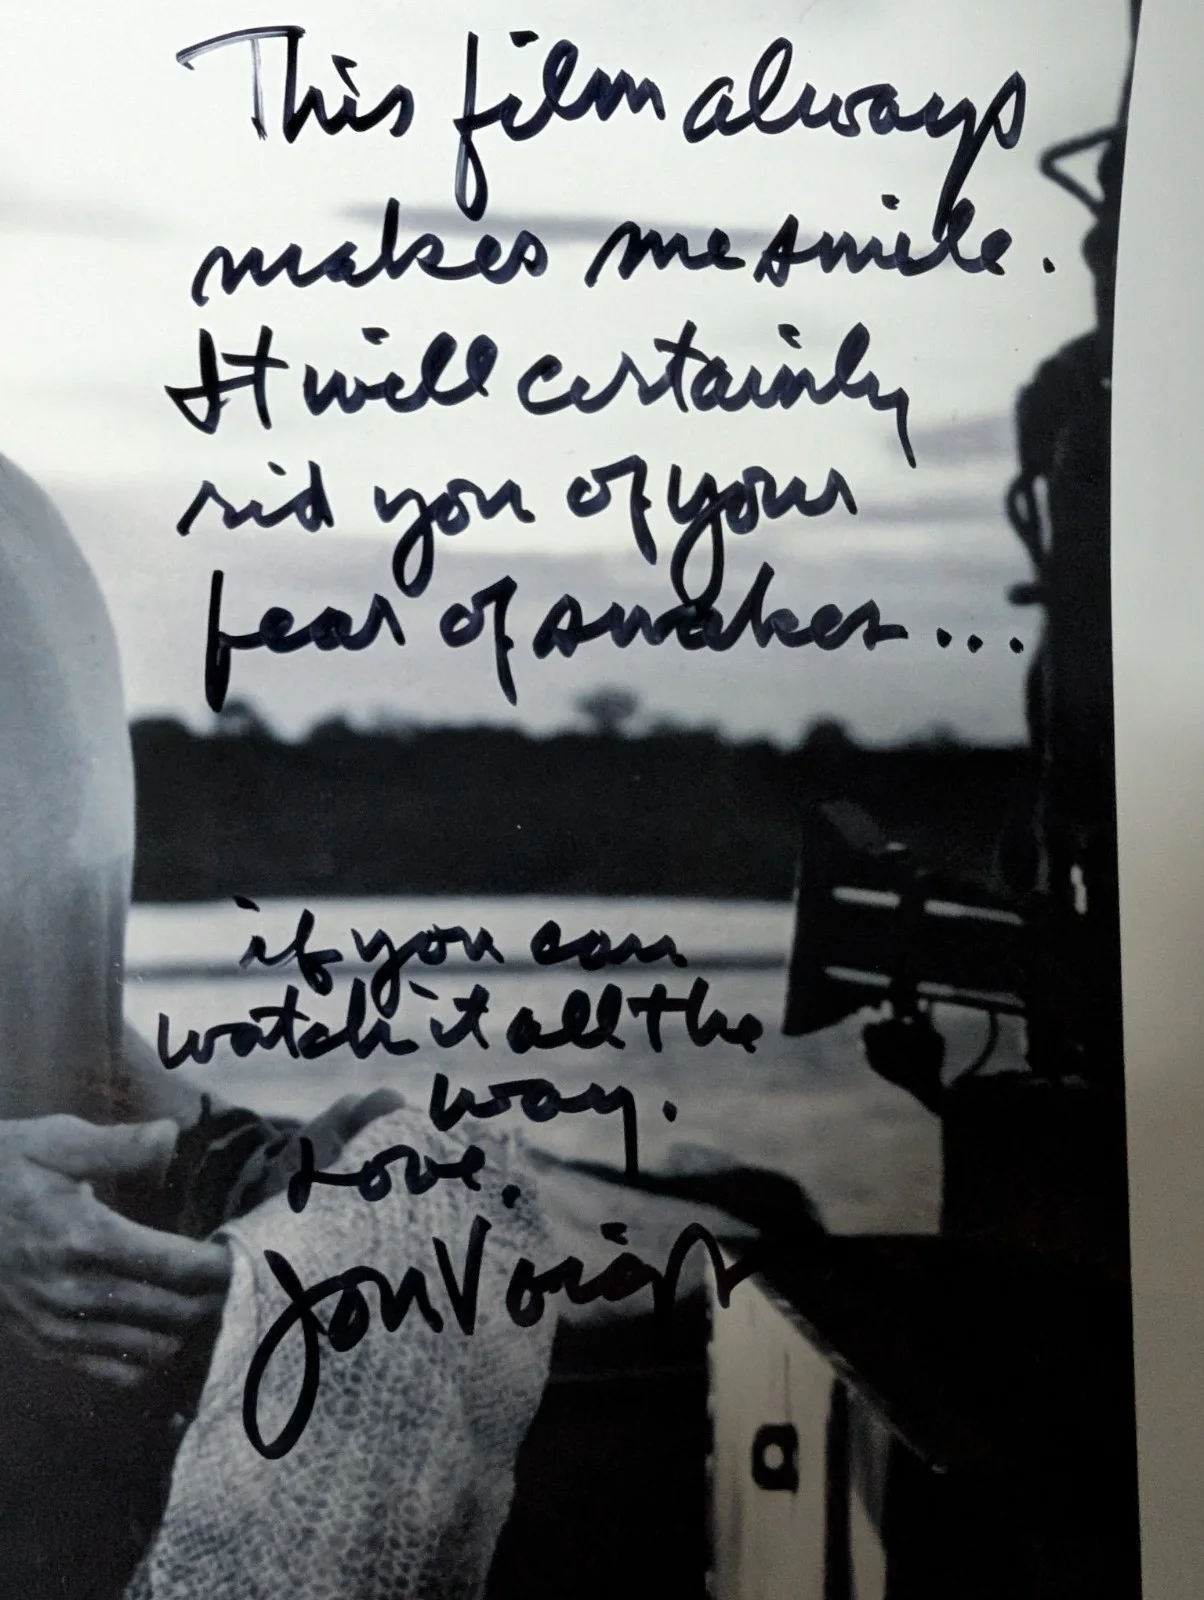 This film always
makes me smile.
It will certainly
rid you of your
fear of snakes...
if you can
watch it all the
way.
Love.
Jon Voight